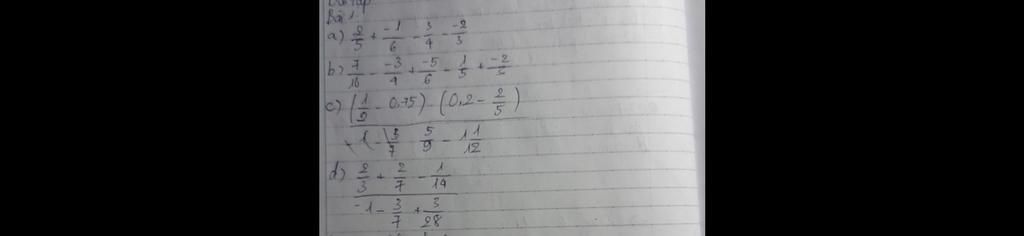 Bài 1.
a) 2/5 + -1/6 - 3/4 - -2/3
b) 7/16 - -3/4 + -5/6 - 1/5 + -2/3
c) (1/9 - 0,75) - (0,2 - 2/5)
1 - 3/7 5/9 - 1 1/12
d) 2/3 + 2/7 - 1/14
-1 - 3/7 + 3/28